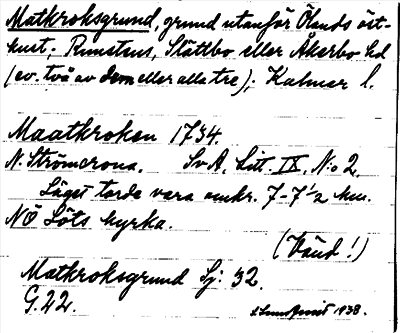 Matkroksgrund, grund utanför Ölands öst-
kust; Runstens, Slättbo eller Åkerbo hd
(ev. två av dem eller alla tre); Kalmar l.
Maatkroken 1734.
N. Strömcrona. Sv. A. Litt. IX, N:o 2.
Läget torde vara omkr. 7-7 1/2 km.
NÖ Löts kyrka.
(Vänd!)
Matkroksgrund Sj: 32.
G. 22. 1938.